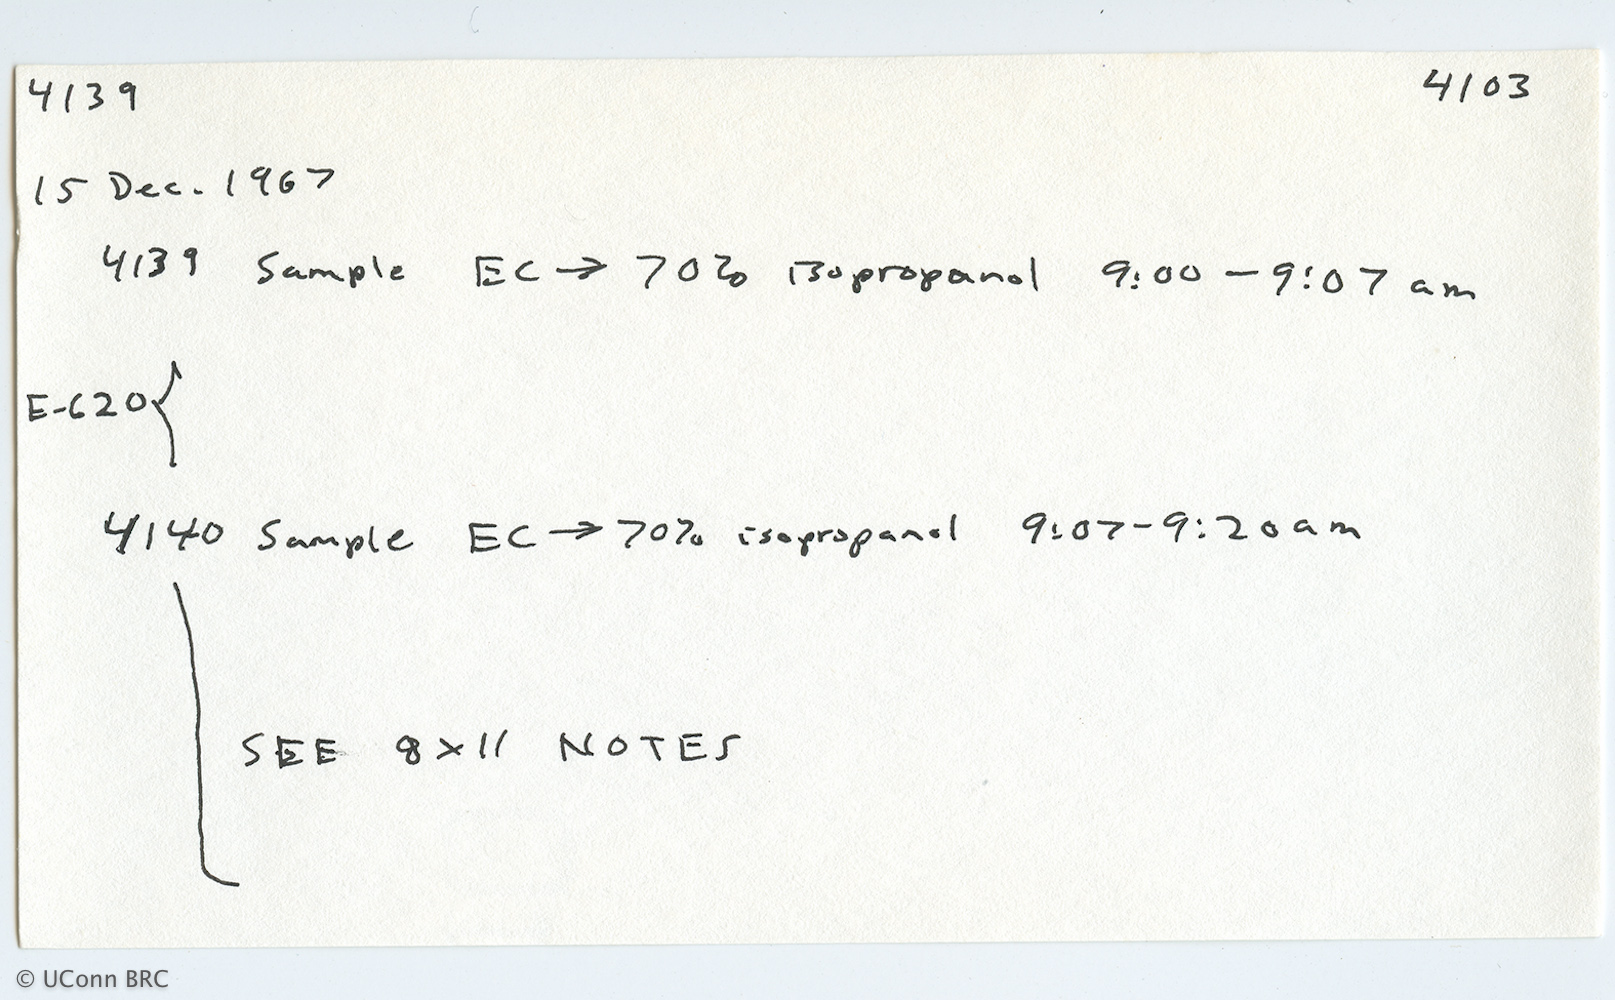 4139 4103
15 Dec. 1967
4139 Sample EC → 70% isopropanol 9:00 - 9:07 am
E-620 {
4140 Sample EC → 70% isopropanol 9:07 - 9:20 am
SEE 8x11 NOTES
© UConn BRC